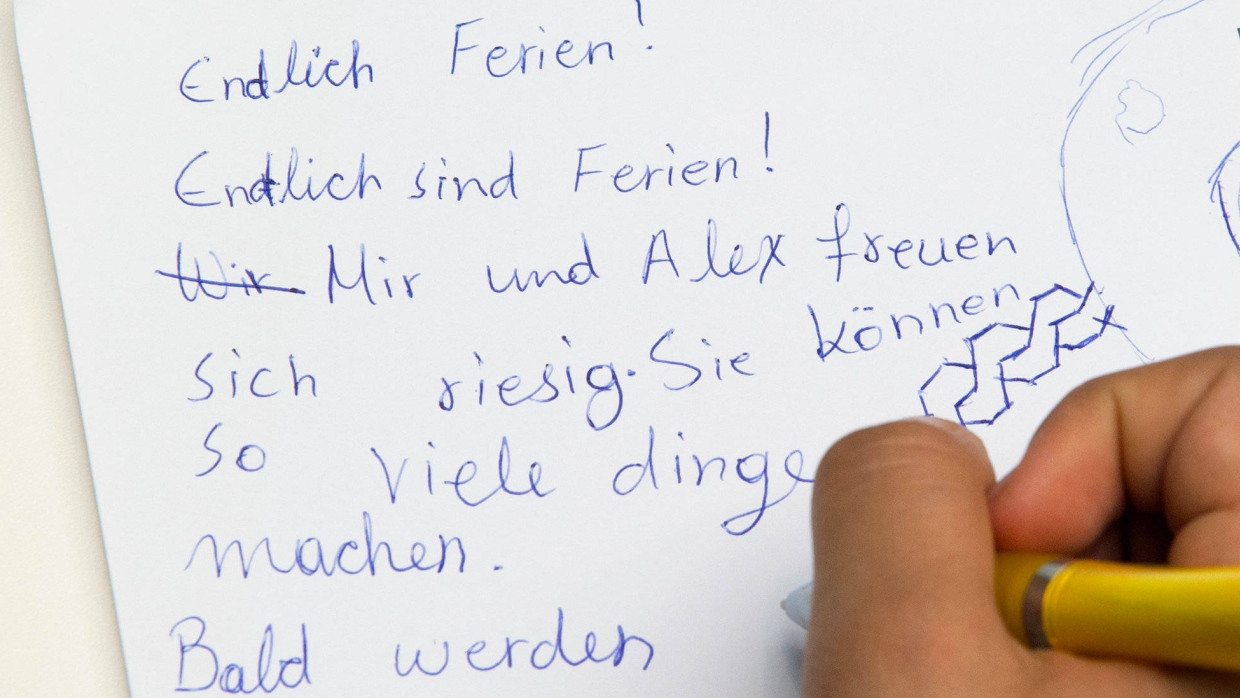 Endlich Ferien!
Endlich sind Ferien!
Wir Mir und Alex freuen
sich riesig. Sie können
so viele dinge
machen.
Bald werden